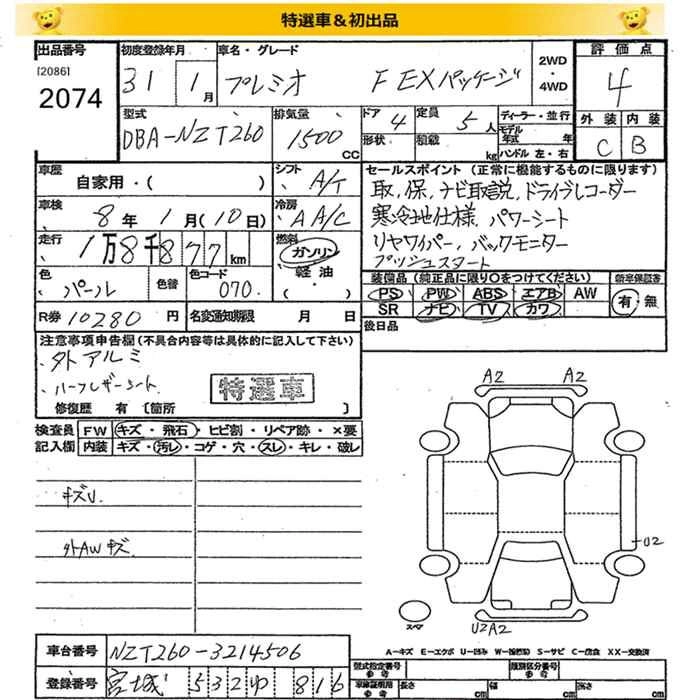 特選車＆初出品
出品番号 初度登録年月 車名・グレード 評価点
[2086] 2074 31 1月 プレミオ F EXパッケージ 2WD・4WD 4
型式 排気量 ドア 4 定員 5人 ディーラー・並行 外装 内装
DBA-NZT260 1500 CC 形状 積載 kg モデル年式 年 ハンドル 左・右 C B
車歴 シフト セールスポイント (正常に機能するものに限ります)
自家用・( ) A/T 取、保、ナビ取説、ドライブレコーダー
車検 8年 1月(10日) 冷房 AA/C 寒冷地仕様、パワーシート
走行 1万8千877km 燃料 ガソリン リヤワイパー、バックモニター
軽油・( ) プッシュスタート
色 パール 色替 色コード 070 装備品 (純正品に限り〇をつけてください) 新車保証書
PS PW ABS エアB AW 有・無
SR ナビ TV カワ
R券 10280 円 名変通知期限 月 日 後日品
注意事項申告欄(不具合内容等は具体的に記入して下さい)
外アルミ
ハーフレザーシート 特選車
修復歴 有 [箇所 ]
検査員 FW キズ・飛石・ヒビ割・リペア跡・×要
記入欄 内装 キズ・汚レ・コゲ・穴・スレ・キレ・破レ
A2 A2
キズU.
外AWキズ
U2
スペア U2A2
A-キズ E-エクボ U-凹み W-補修跡 S-サビ C-腐食 XX-交換済
車台番号 NZT260-3214506
登録番号 宮城 532 ゆ 816
型式指定番号 参考 類別区分番号 参考
車庫証明用 参考 長さ cm 幅 cm 高さ cm